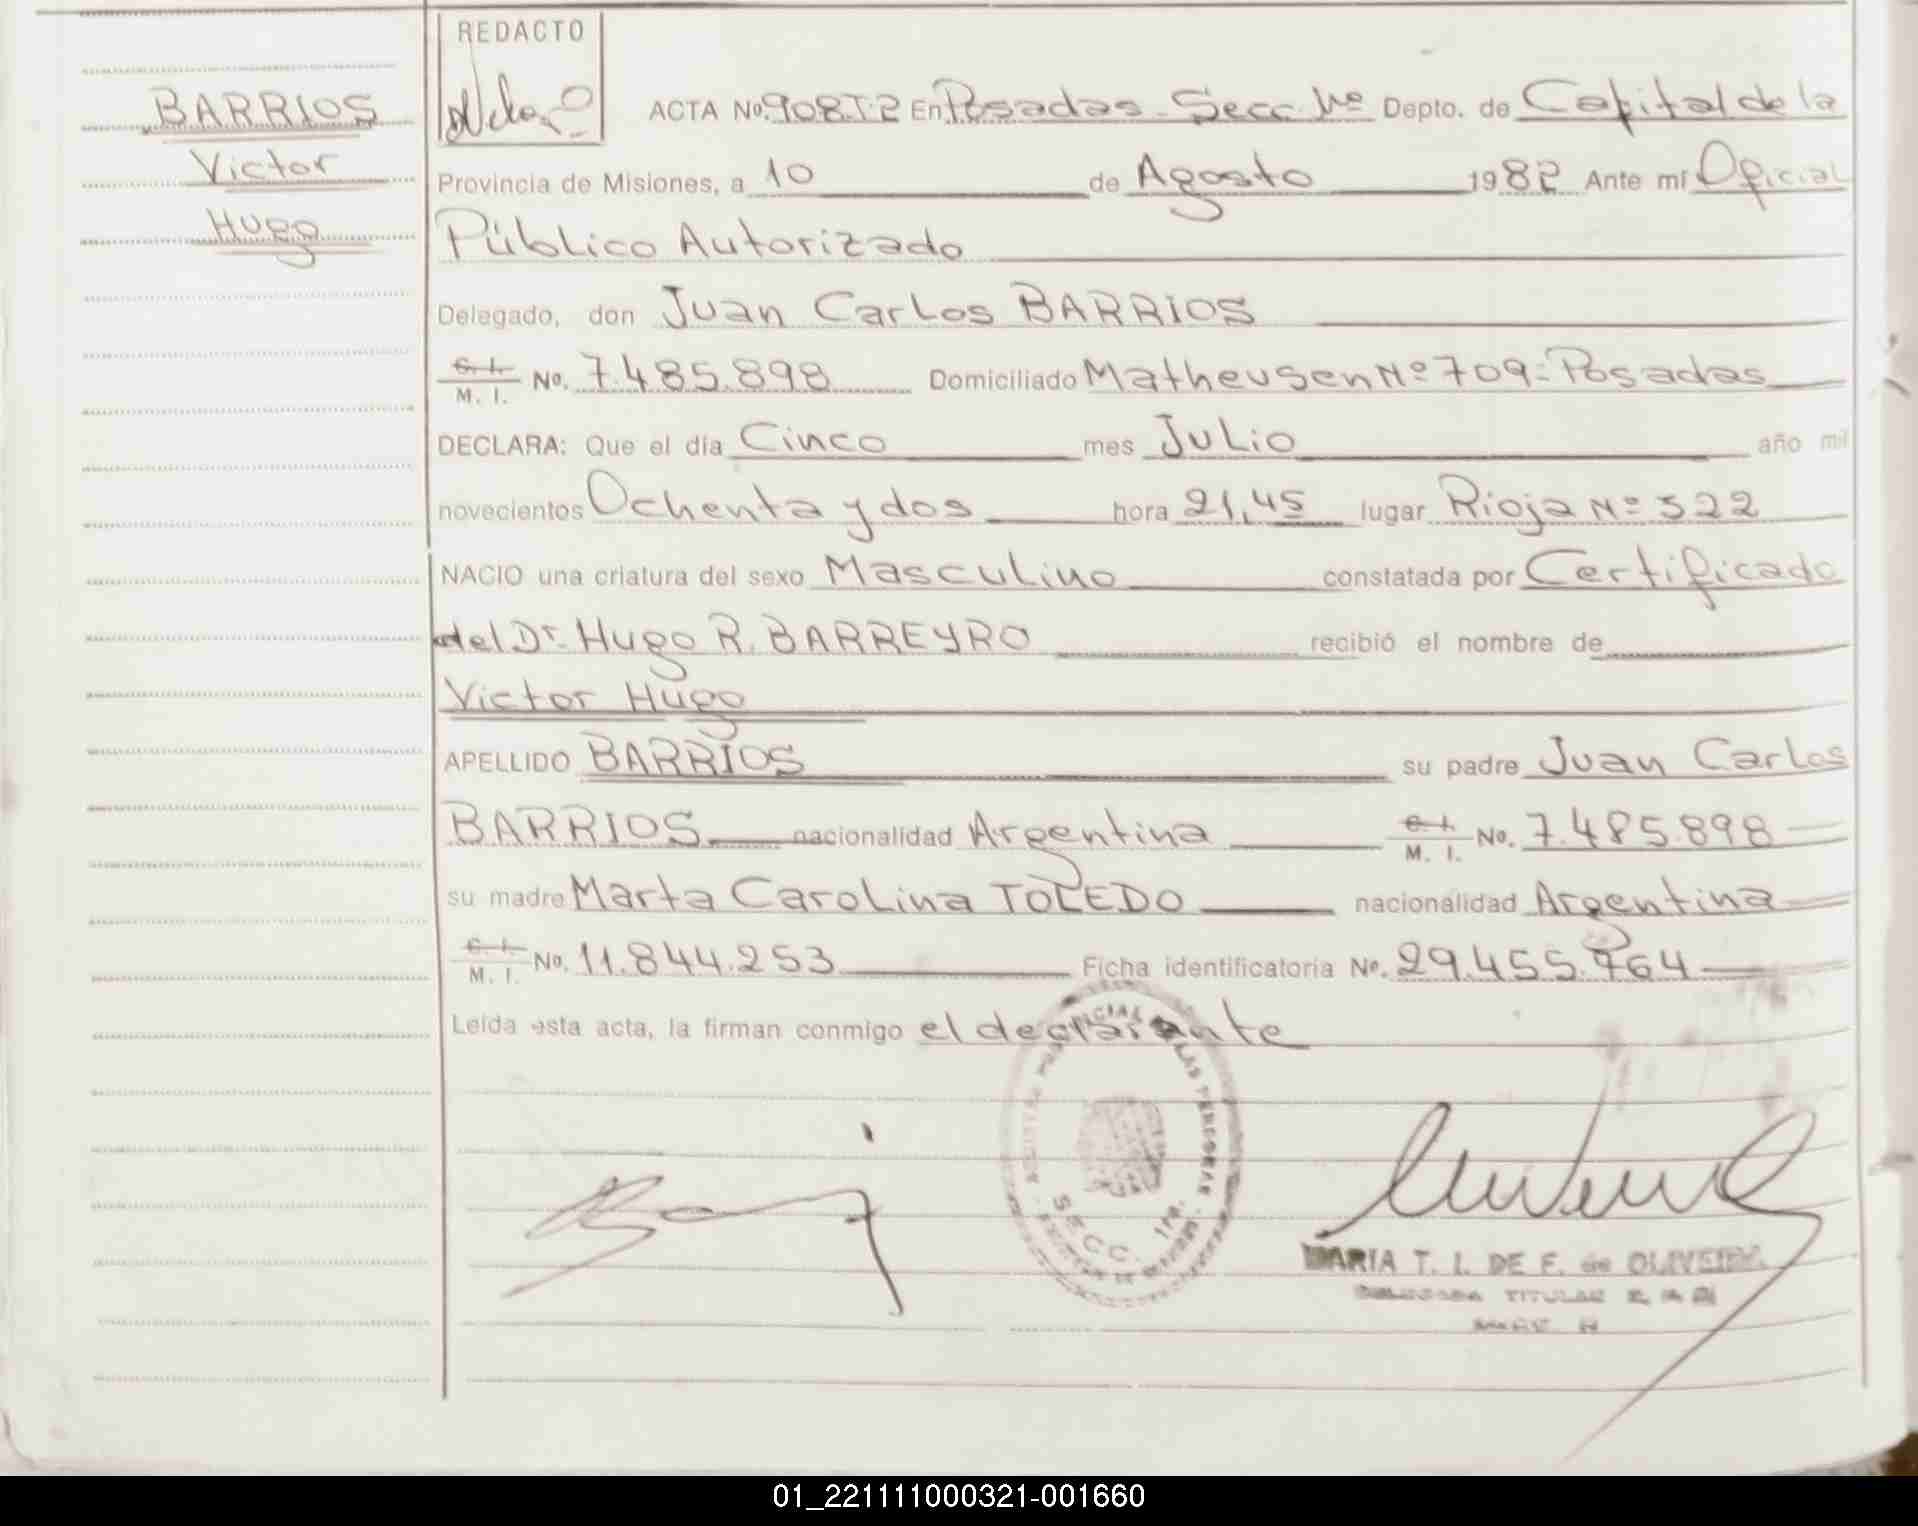 REDACTO
BARRIOS
Victor
Hugo
ACTA No. 908 T.2 En Posadas Secc 1ª Depto. de Capital de la
Provincia de Misiones, a 10 de Agosto 1982 Ante mí Oficial
Público Autorizado
Delegado, don Juan Carlos BARRIOS
C. I.
M. I. No. 7.485.898 Domiciliado Matheu Nº 709 = Posadas
DECLARA: Que el día Cinco mes Julio año mil
novecientos Ochenta y dos hora 21,45 lugar Rioja Nº 322
NACIO una criatura del sexo Masculino constatada por Certificado
del Dr. Hugo R. BARREYRO recibió el nombre de
Victor Hugo
APELLIDO BARRIOS su padre Juan Carlos
BARRIOS nacionalidad Argentina C. I.
M. I. No. 7.485.898
su madre Marta Carolina TOLEDO nacionalidad Argentina
C. I.
M. I. No. 11.844.253 Ficha identificatoria No. 29.455.764
Leída esta acta, la firman conmigo el declarante
SECC. 1ra.
MARIA T. I. DE F. de OLIVEIRA
TITULAR
01_221111000321-001660